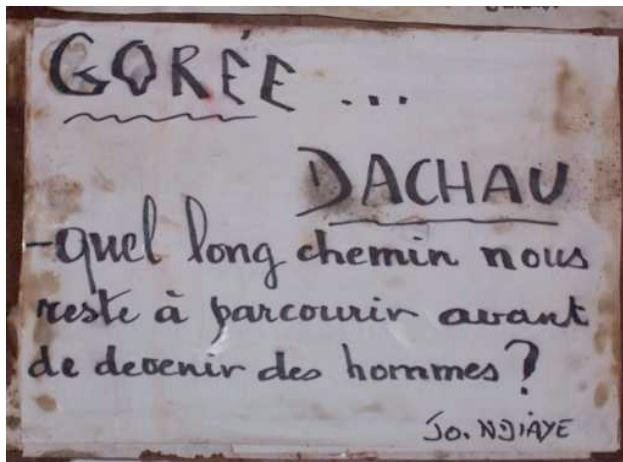 GORÉE ...
DACHAU
- quel long chemin nous
reste à parcourir avant
de devenir des hommes ?
Jo. NDIAYE